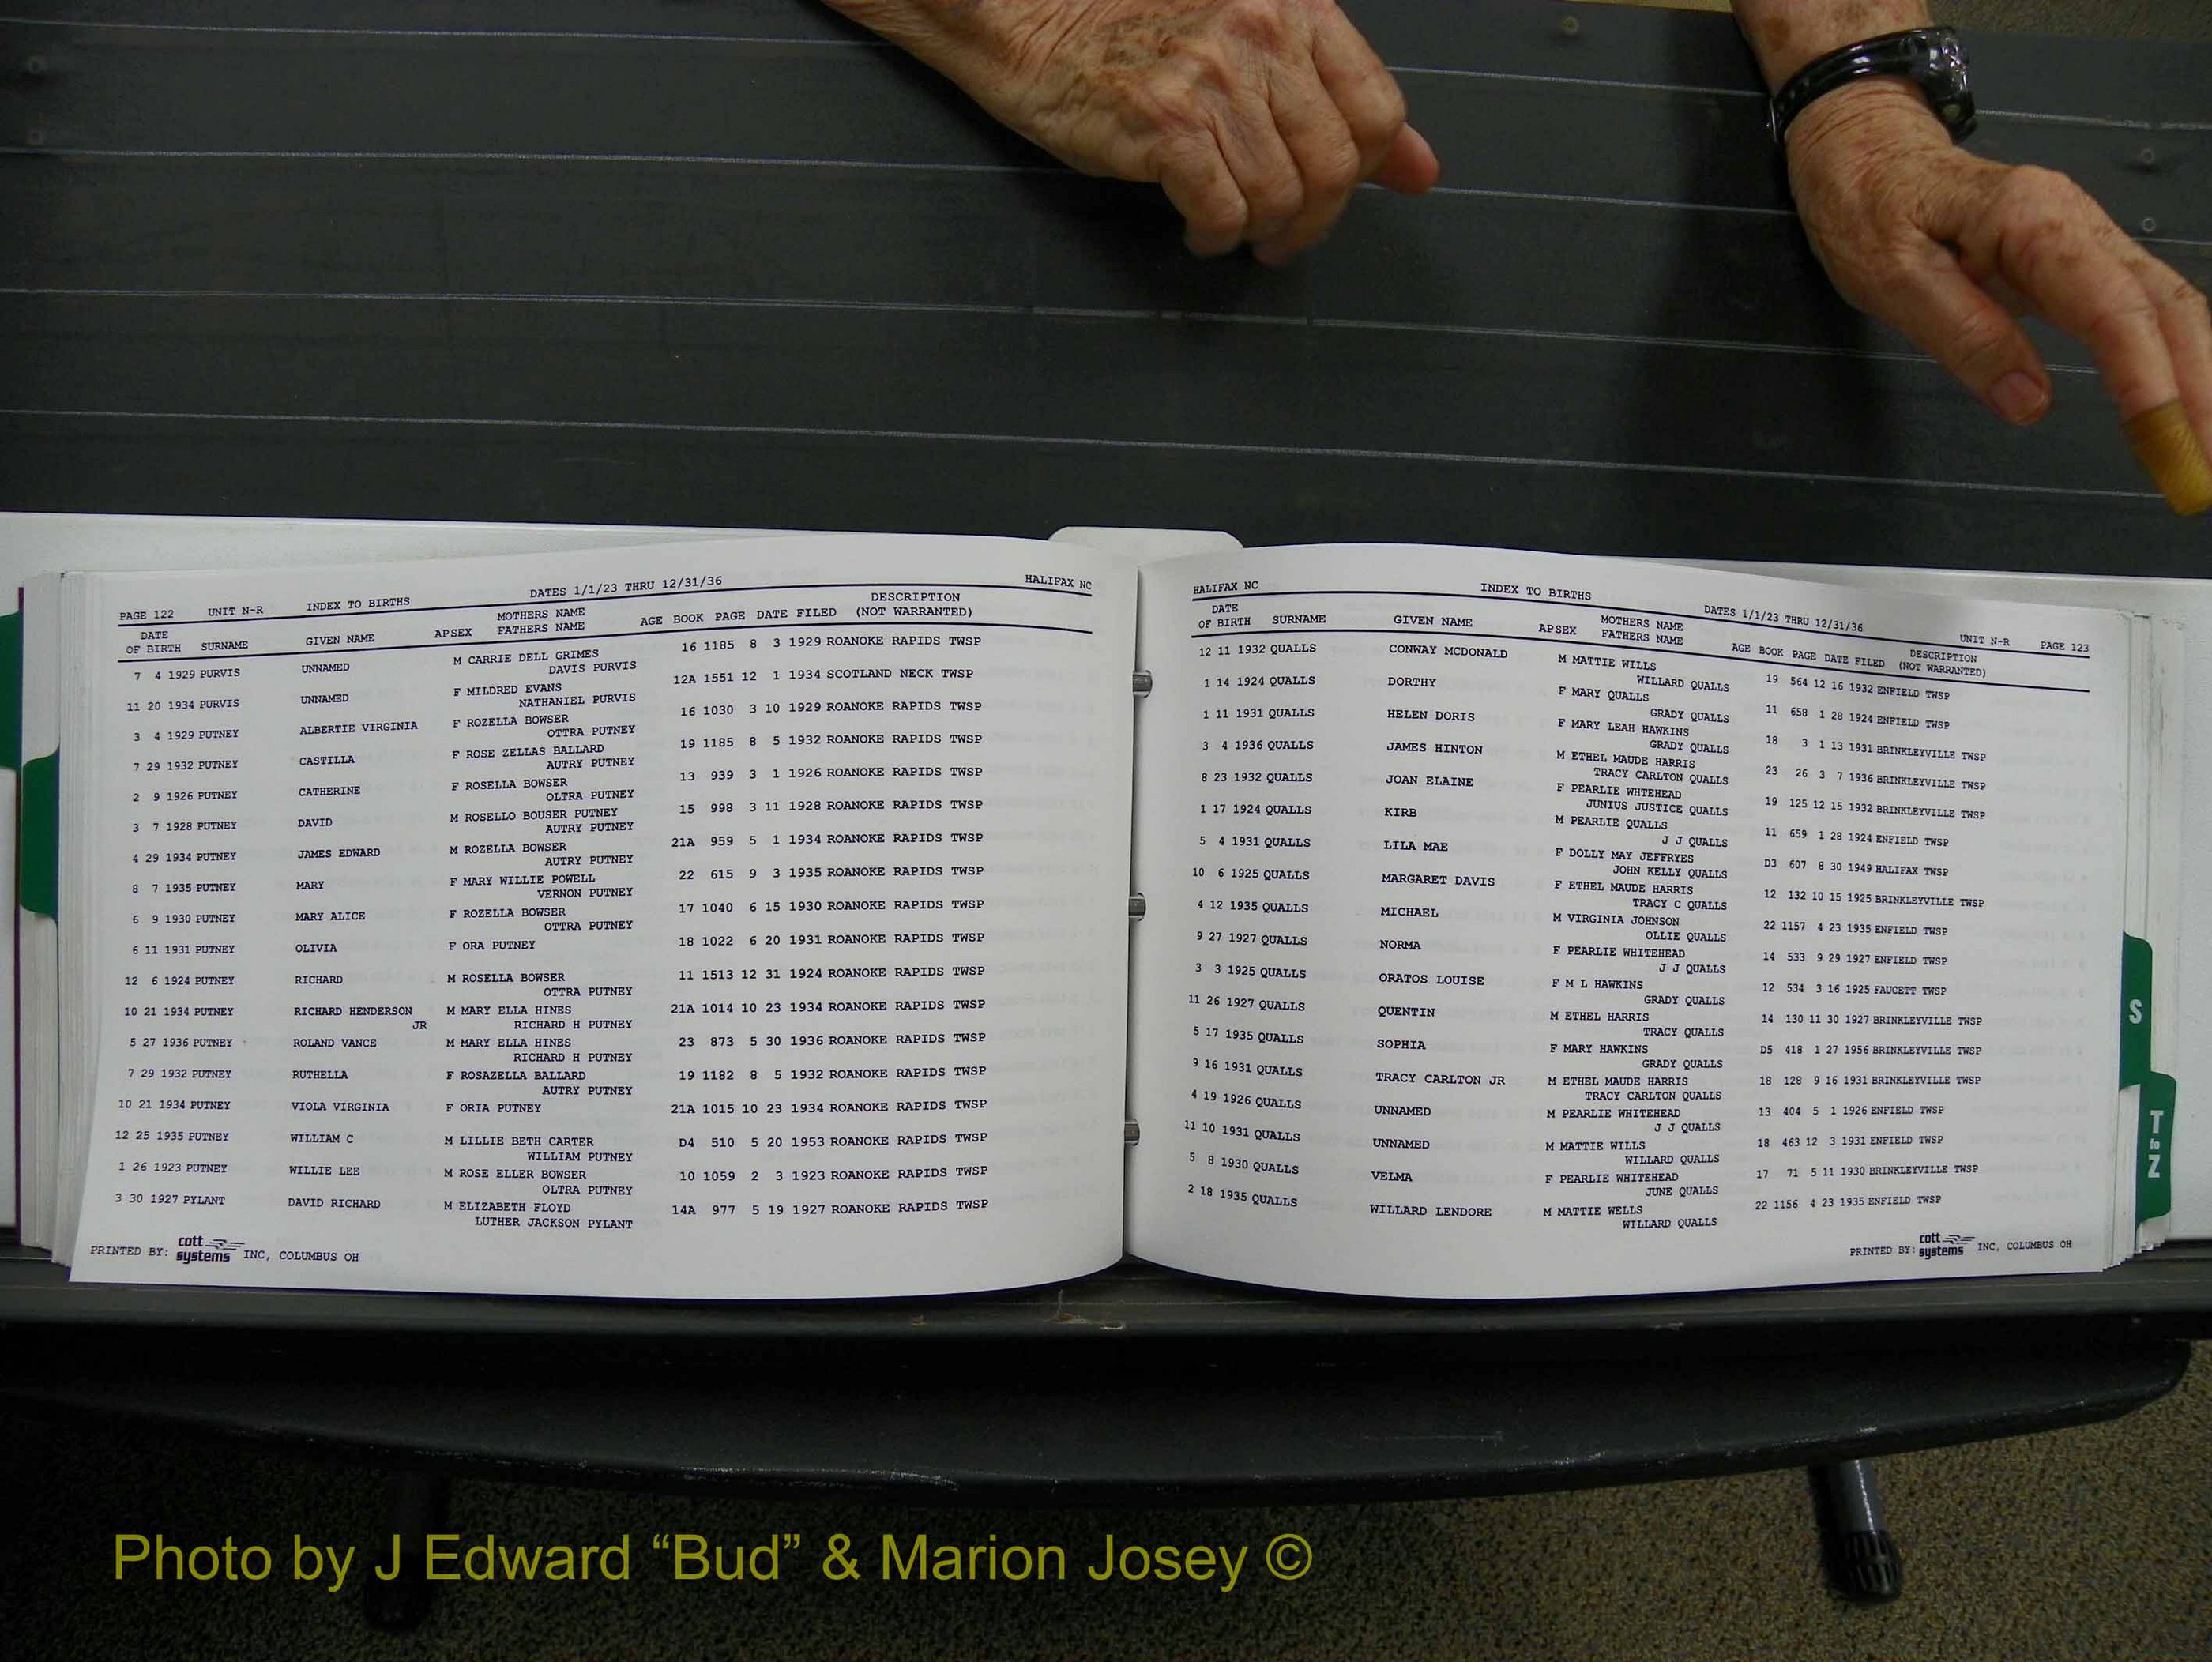 PAGE 122 UNIT N-R INDEX TO BIRTHS DATES 1/1/23 THRU 12/31/36 HALIFAX NC
DATE OF BIRTH SURNAME GIVEN NAME AP SEX MOTHERS NAME FATHERS NAME AGE BOOK PAGE DATE FILED DESCRIPTION (NOT WARRANTED)
7 4 1929 PURVIS UNNAMED M CARRIE DELL GRIMES 16 1185 8 3 1929 ROANOKE RAPIDS TWSP
DAVIS PURVIS
11 20 1934 PURVIS UNNAMED F MILDRED EVANS 12A 1551 12 1 1934 SCOTLAND NECK TWSP
NATHANIEL PURVIS
3 4 1929 PUTNEY ALBERTIE VIRGINIA F ROZELLA BOWSER 16 1030 3 10 1929 ROANOKE RAPIDS TWSP
OTTRA PUTNEY
7 29 1932 PUTNEY CASTILLA F ROSE ZELLAS BALLARD 19 1185 8 5 1932 ROANOKE RAPIDS TWSP
AUTRY PUTNEY
2 9 1926 PUTNEY CATHERINE F ROSELLA BOWSER 13 939 3 1 1926 ROANOKE RAPIDS TWSP
OLTRA PUTNEY
3 7 1928 PUTNEY DAVID M ROSELLO BOUSER PUTNEY 15 998 3 11 1928 ROANOKE RAPIDS TWSP
AUTRY PUTNEY
4 29 1934 PUTNEY JAMES EDWARD M ROZELLA BOWSER 21A 959 5 1 1934 ROANOKE RAPIDS TWSP
AUTRY PUTNEY
8 7 1935 PUTNEY MARY F MARY WILLIE POWELL 22 615 9 3 1935 ROANOKE RAPIDS TWSP
VERNON PUTNEY
6 9 1930 PUTNEY MARY ALICE F ROZELLA BOWSER 17 1040 6 15 1930 ROANOKE RAPIDS TWSP
OTTRA PUTNEY
6 11 1931 PUTNEY OLIVIA F ORA PUTNEY 18 1022 6 20 1931 ROANOKE RAPIDS TWSP
12 6 1924 PUTNEY RICHARD M ROSELLA BOWSER 11 1513 12 31 1924 ROANOKE RAPIDS TWSP
OTTRA PUTNEY
10 21 1934 PUTNEY RICHARD HENDERSON M MARY ELLA HINES 21A 1014 10 23 1934 ROANOKE RAPIDS TWSP
JR RICHARD H PUTNEY
5 27 1936 PUTNEY ROLAND VANCE M MARY ELLA HINES 23 873 5 30 1936 ROANOKE RAPIDS TWSP
RICHARD H PUTNEY
7 29 1932 PUTNEY RUTHELLA F ROSAZELLA BALLARD 19 1182 8 5 1932 ROANOKE RAPIDS TWSP
AUTRY PUTNEY
10 21 1934 PUTNEY VIOLA VIRGINIA F ORIA PUTNEY 21A 1015 10 23 1934 ROANOKE RAPIDS TWSP
12 25 1935 PUTNEY WILLIAM C M LILLIE BETH CARTER D4 510 5 20 1953 ROANOKE RAPIDS TWSP
WILLIAM PUTNEY
1 26 1923 PUTNEY WILLIE LEE M ROSE ELLER BOWSER 10 1059 2 3 1923 ROANOKE RAPIDS TWSP
OLTRA PUTNEY
3 30 1927 PYLANT DAVID RICHARD M ELIZABETH FLOYD 14A 977 5 19 1927 ROANOKE RAPIDS TWSP
LUTHER JACKSON PYLANT
PRINTED BY: cott systems INC, COLUMBUS OH
HALIFAX NC INDEX TO BIRTHS DATES 1/1/23 THRU 12/31/36 UNIT N-R PAGE 123
DATE OF BIRTH SURNAME GIVEN NAME AP SEX MOTHERS NAME FATHERS NAME AGE BOOK PAGE DATE FILED DESCRIPTION (NOT WARRANTED)
12 11 1932 QUALLS CONWAY MCDONALD M MATTIE WILLS 19 564 12 16 1932 ENFIELD TWSP
WILLARD QUALLS
1 14 1924 QUALLS DORTHY F MARY QUALLS 11 658 1 28 1924 ENFIELD TWSP
GRADY QUALLS
1 11 1931 QUALLS HELEN DORIS F MARY LEAH HAWKINS 18 3 1 13 1931 BRINKLEYVILLE TWSP
GRADY QUALLS
3 4 1936 QUALLS JAMES HINTON M ETHEL MAUDE HARRIS 23 26 3 7 1936 BRINKLEYVILLE TWSP
TRACY CARLTON QUALLS
8 23 1932 QUALLS JOAN ELAINE F PEARLIE WHTEHEAD 19 125 12 15 1932 BRINKLEYVILLE TWSP
JUNIUS JUSTICE QUALLS
1 17 1924 QUALLS KIRB M PEARLIE QUALLS 11 659 1 28 1924 ENFIELD TWSP
J J QUALLS
5 4 1931 QUALLS LILA MAE F DOLLY MAY JEFFRYES D3 607 8 30 1949 HALIFAX TWSP
JOHN KELLY QUALLS
10 6 1925 QUALLS MARGARET DAVIS F ETHEL MAUDE HARRIS 12 132 10 15 1925 BRINKLEYVILLE TWSP
TRACY C QUALLS
4 12 1935 QUALLS MICHAEL M VIRGINIA JOHNSON 22 1157 4 23 1935 ENFIELD TWSP
OLLIE QUALLS
9 27 1927 QUALLS NORMA F PEARLIE WHITEHEAD 14 533 9 29 1927 ENFIELD TWSP
J J QUALLS
3 3 1925 QUALLS ORATOS LOUISE F M L HAWKINS 12 534 3 16 1925 FAUCETT TWSP
GRADY QUALLS
11 26 1927 QUALLS QUENTIN M ETHEL HARRIS 14 130 11 30 1927 BRINKLEYVILLE TWSP
TRACY QUALLS
5 17 1935 QUALLS SOPHIA F MARY HAWKINS D5 418 1 27 1956 BRINKLEYVILLE TWSP
GRADY QUALLS
9 16 1931 QUALLS TRACY CARLTON JR M ETHEL MAUDE HARRIS 18 128 9 16 1931 BRINKLEYVILLE TWSP
TRACY CARLTON QUALLS
4 19 1926 QUALLS UNNAMED M PEARLIE WHITEHEAD 13 404 5 1 1926 ENFIELD TWSP
J J QUALLS
11 10 1931 QUALLS UNNAMED M MATTIE WILLS 18 463 12 3 1931 ENFIELD TWSP
WILLARD QUALLS
5 8 1930 QUALLS VELMA F PEARLIE WHITEHEAD 17 71 5 11 1930 BRINKLEYVILLE TWSP
JUNE QUALLS
2 18 1935 QUALLS WILLARD LENDORE M MATTIE WELLS 22 1156 4 23 1935 ENFIELD TWSP
WILLARD QUALLS
PRINTED BY: cott systems INC, COLUMBUS OH
S
T to Z
Photo by J Edward “Bud” & Marion Josey ©